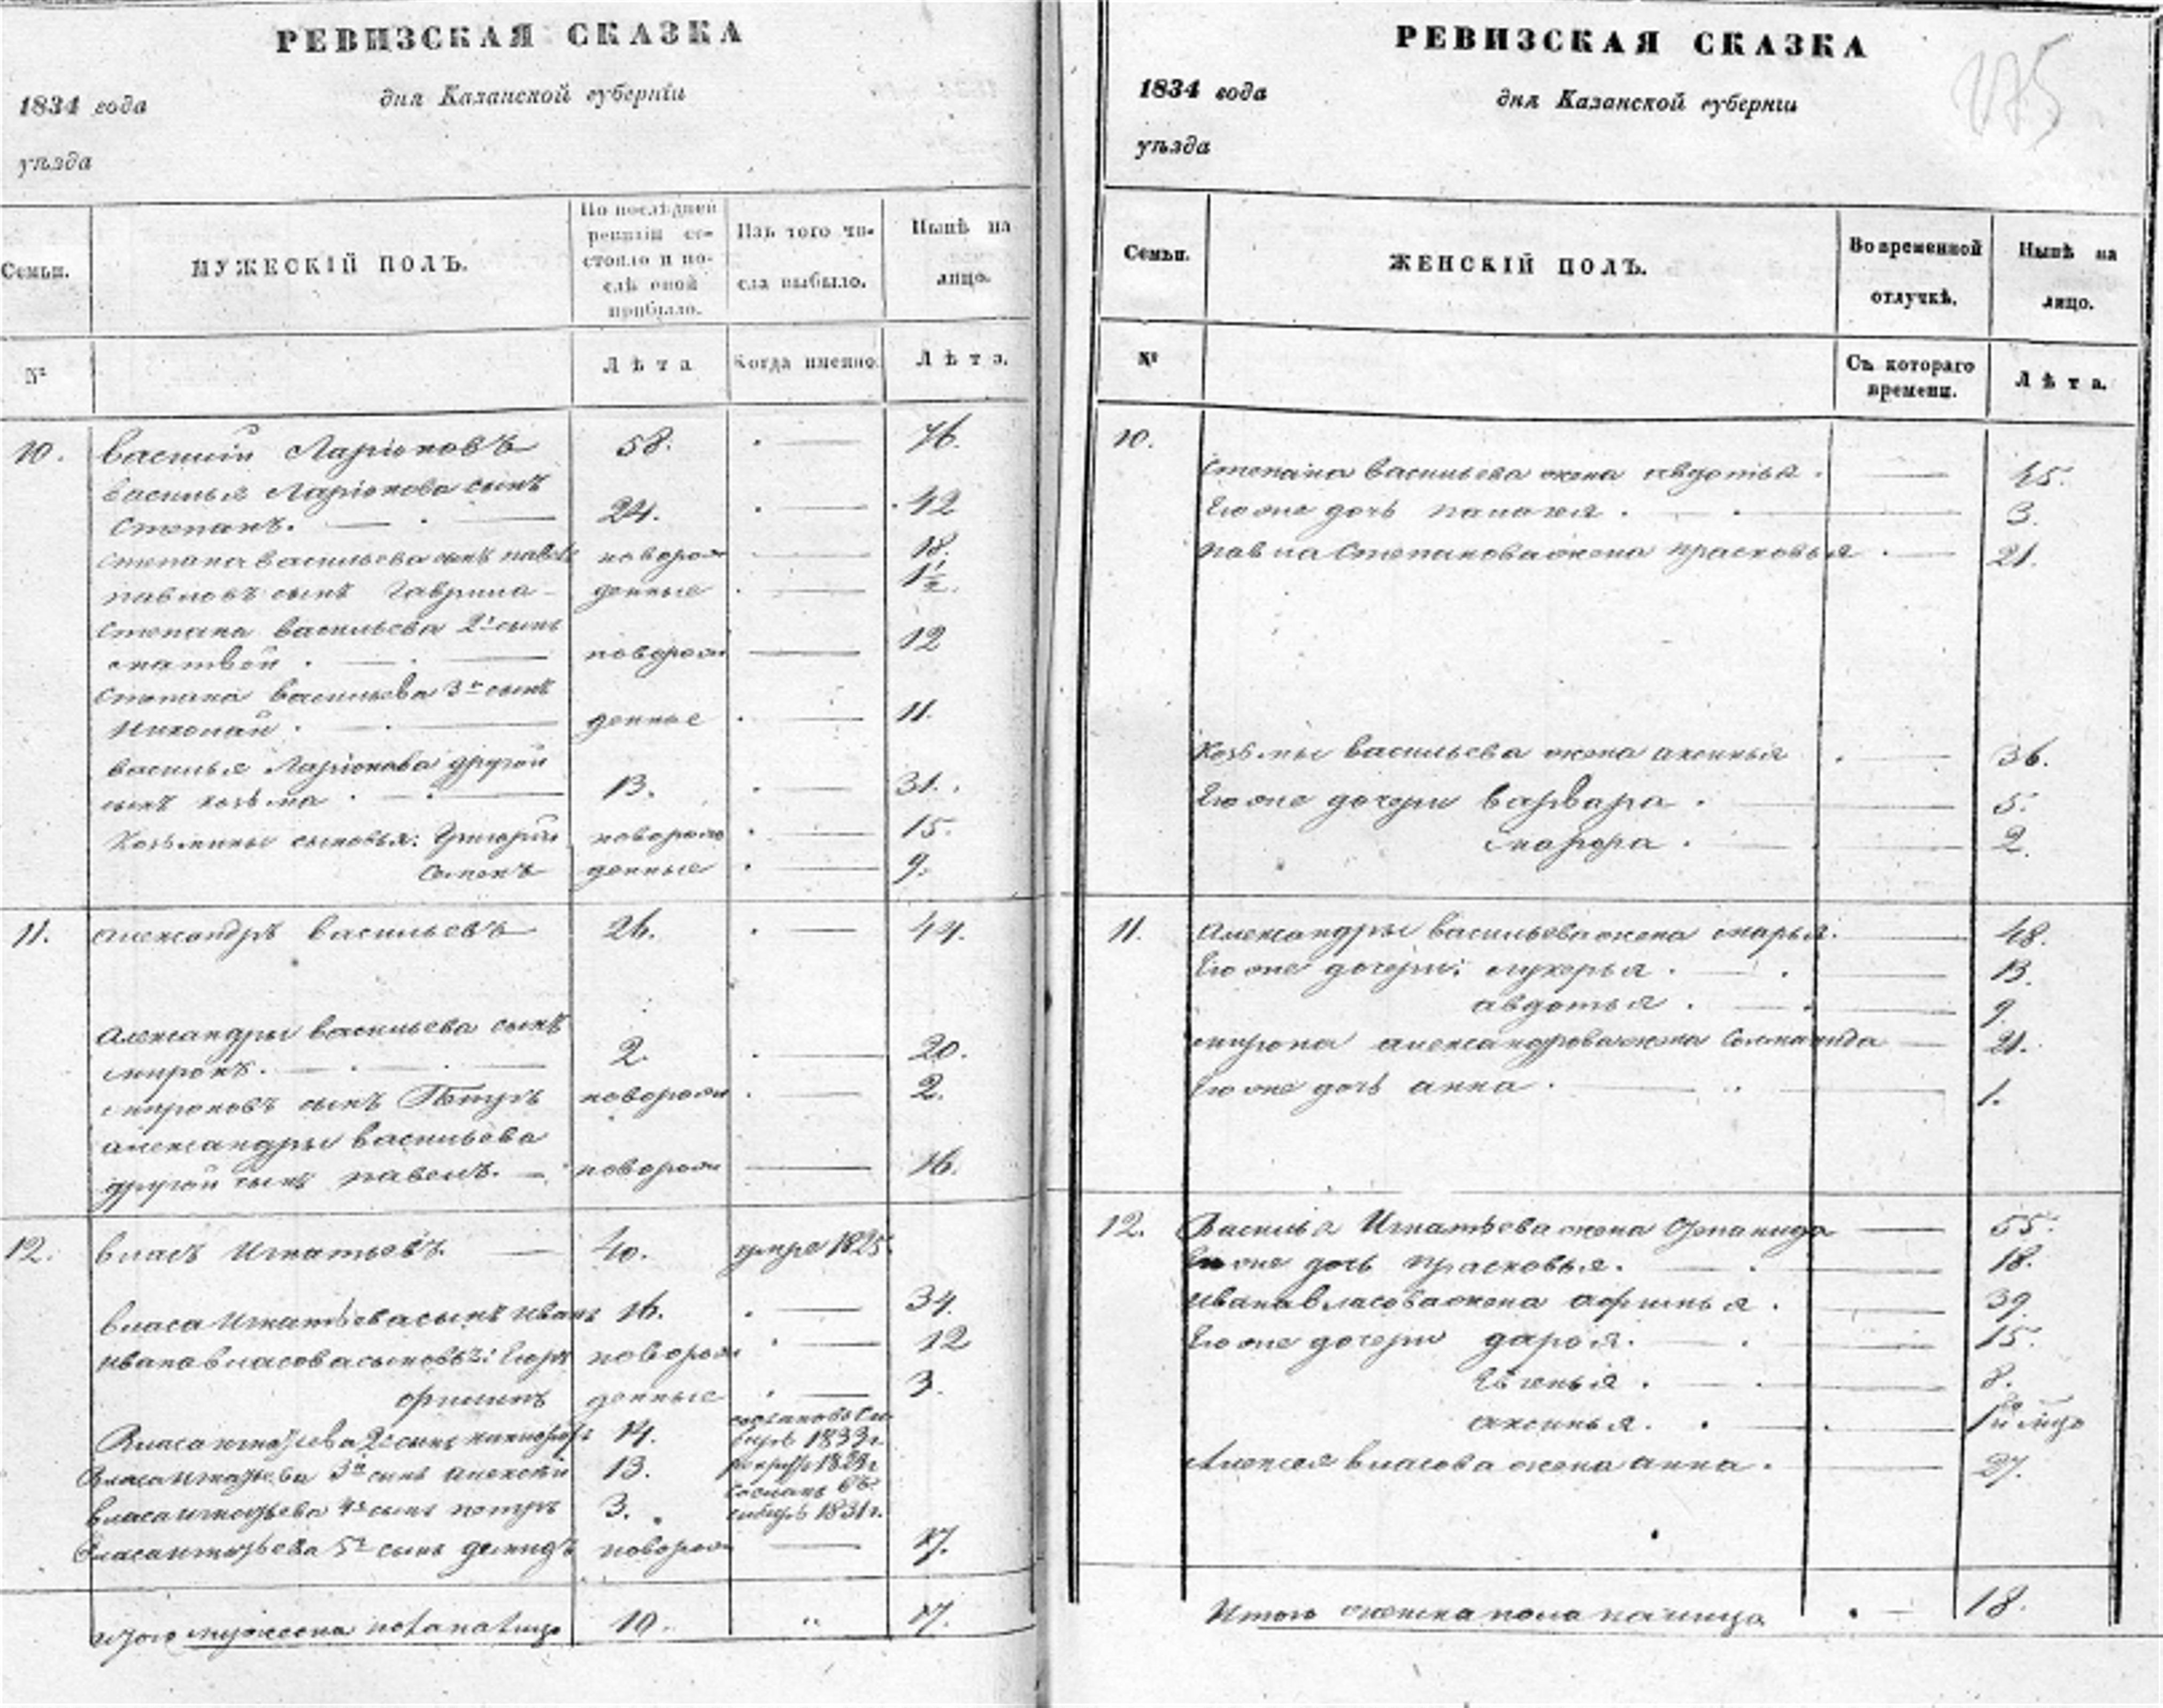 РЕВИЗСКАЯ СКАЗКА
1834 года
дня Казанской губерніи
уѣзда
Семьи.
МУЖЕСКІЙ ПОЛЪ.
По послѣдней
ревизіи со-
стояло и по-
слѣ оной
прибыло.
Изъ того чи-
сла выбыло.
Нынѣ на
лицо.
№
Лѣта
Когда именно.
Лѣта.
10. Василій Ларіоновъ 58. 76.
Василья Ларіонова сынъ
Степанъ. 24. 42
Степана Васильева сынъ Павелъ новорож 18.
Павловъ сынъ Гаврила денные 1½.
Степана Васильева 2й сынъ
Матвей новорож 12
Степана Васильева 3й сынъ
Николай денные 11.
Василья Ларіонова другой
сынъ Козьма 13. 31.
Козьмины сыновья: Григорій новорож 15.
Семенъ денные 9.
11. Александръ Васильевъ 26. 44.
Александры Васильева сынъ
Миронъ. 2. 20.
Мироновъ сынъ Петръ новорож 2.
Александры Васильева
другой сынъ Павелъ. новорож 16.
12. Власъ Игнатьевъ. 40. умре 1825.
Власа Игнатьева сынъ Иванъ 16. 34.
Ивана Власова сыновья: Егоръ новорож 12
Филипъ денные 3.
Власа Игнатьева 2й сынъ Никифоръ 14. 1833г.
Власа Игнатьева 3й сынъ Алексѣй 13.
Власа Игнатьева 4й сынъ Петръ 3. сосланъ въ
сибирь 1831г.
Власа Игнатьева 5й сынъ Демидъ новорож 17.
Итого мужеска пола на лицо 19. 17.
РЕВИЗСКАЯ СКАЗКА
1834 года
дня Казанской губерніи
уѣзда
175
Семьи.
ЖЕНСКІЙ ПОЛЪ.
Во временной
отлучкѣ.
Нынѣ на
лицо.
№
Съ котораго
времени.
Лѣта.
10.
Степана Васильева жена Авдотья 45.
Его же дочь Палагея 3.
Павла Степанова жена Прасковья 21.
Козьмы Васильева жена Аксинья 36.
Его же дочери Варвара 5.
Марфа 2.
11. Александры Васильева жена Марья. 48.
Его же дочери: Лукерья 13.
Авдотья 9
Мирона Александрова жена 21.
Его же дочь Анна 1.
12. Василья Игнатьева жена 55.
Ево же дочь Прасковья. 18.
Ивана Власова жена Афимья 39.
Его же дочери Дарья. 15.
Евгенья 8.
Аксинья.
Алексея Власова жена Анна. 27.
Итого женска пола на лицо 18.